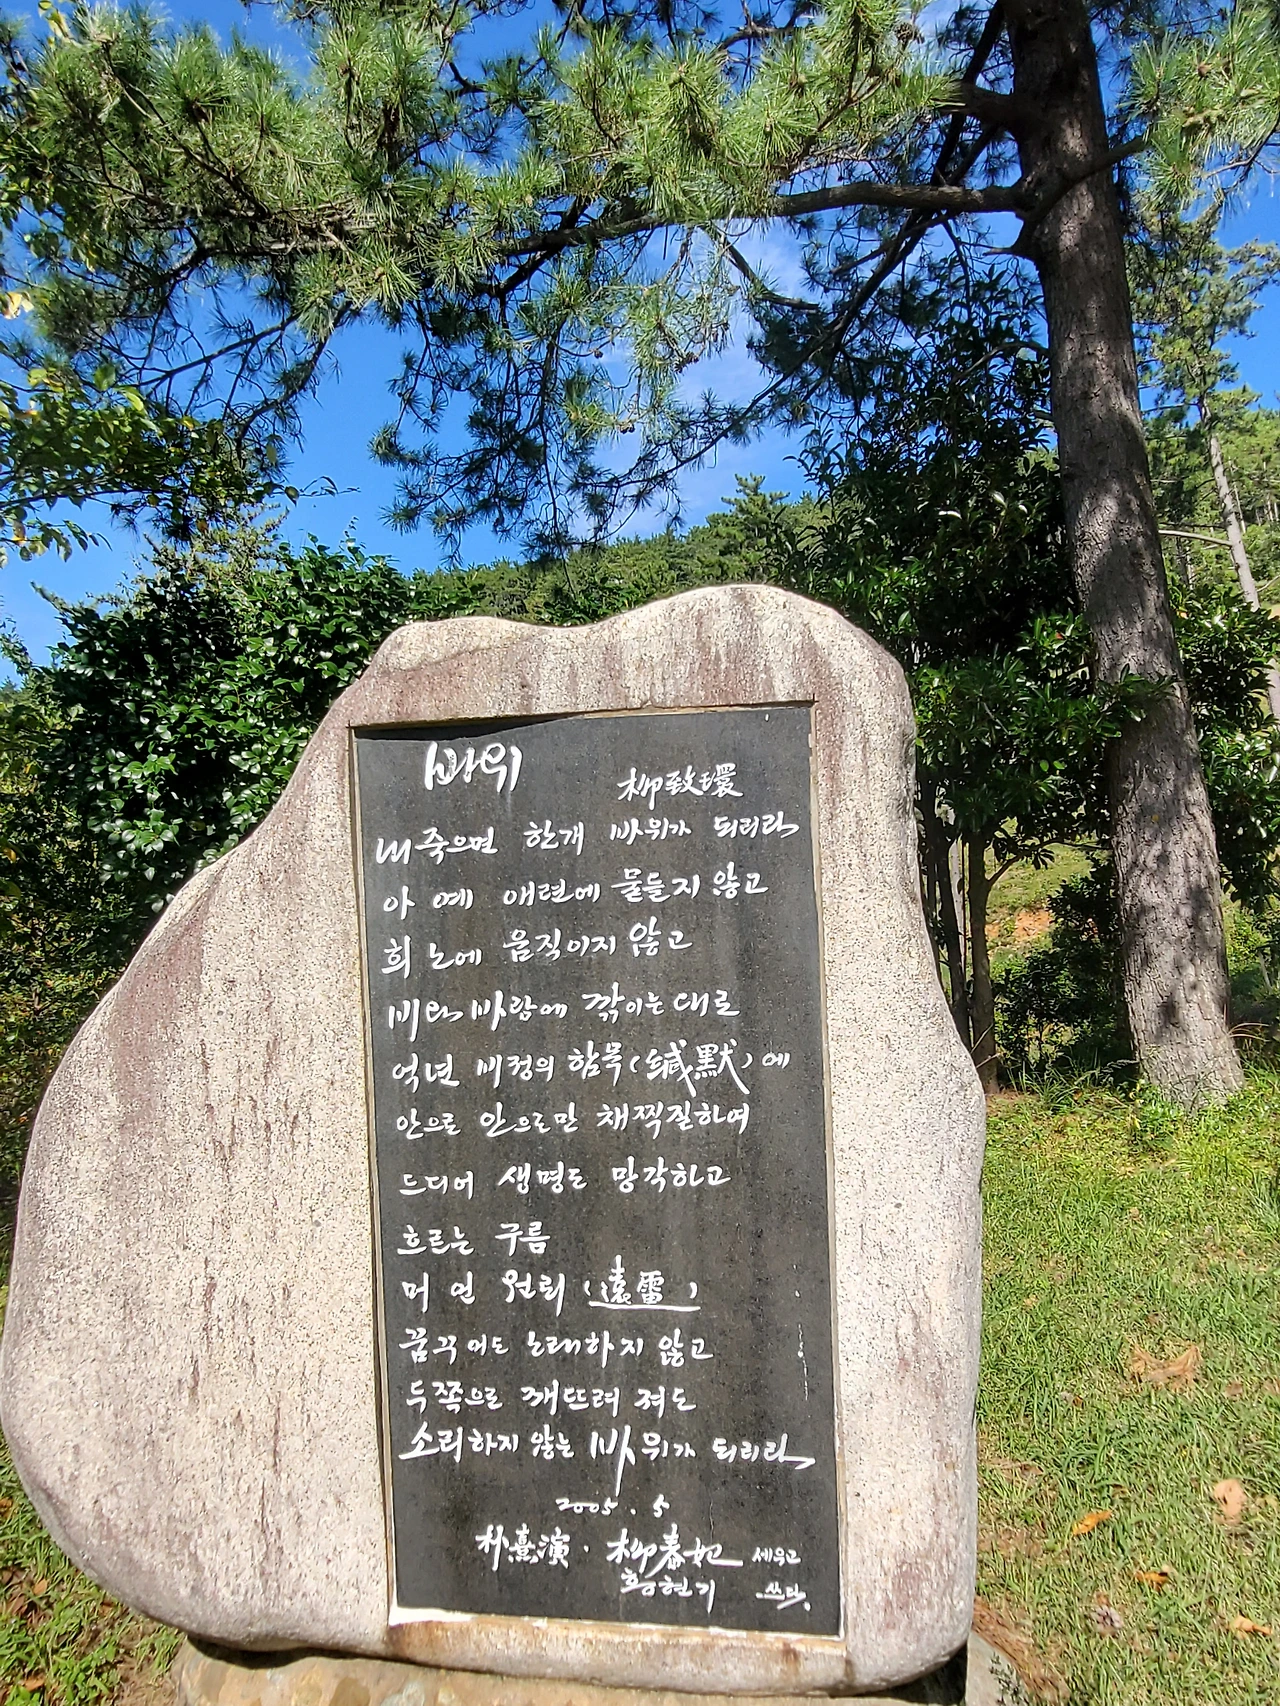 바위
柳致環
내 죽으면 한개 바위가 되리라
아 예 애련에 물들지 않고
희 노에 움직이지 않고
비와 바람에 깎이는 대로
억년 비정의 함묵(緘默)에
안으로 안으로만 채찍질하여
드디어 생명도 망각하고
흐르는 구름
머 언 원뢰(遠雷)
꿈꾸어도 노래하지 않고
두쪽으로 깨뜨려 져도
소리하지 않는 바위가 되리라
2005. 5
朴熹演 · 柳春妃 세우고
황현기 쓰다.